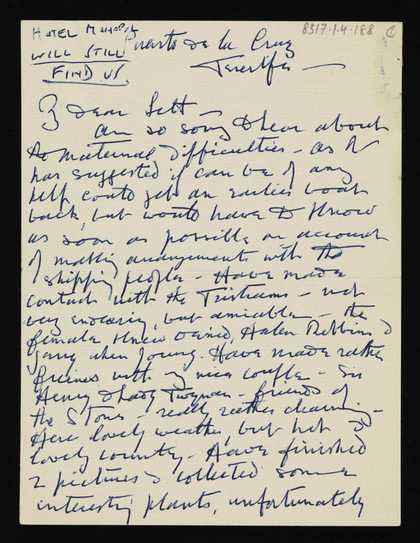 HOTEL
WILL STILL
FIND US
8317·1·4·188
Puerto de la Cruz
Tenerife —
My dear Lett —
Am so sorry to hear about
the maternal difficulties — as
has suggested if can be of any
help could get an earlier boat
back, but would have to know
as soon as possible on account
of making arrangements with the
shipping people — Have made
contact with the Tristrams — not
very endearing, but amicable — the
female knew David, Helen &
when young. Have made rather
friends with a nice couple — Sir
Henry & Lady Twynam — friends of
the Stones — really rather charming —
Here lovely weather, but hot &
lovely country — Have finished
2 pictures & collected some
interesting plants, unfortunately